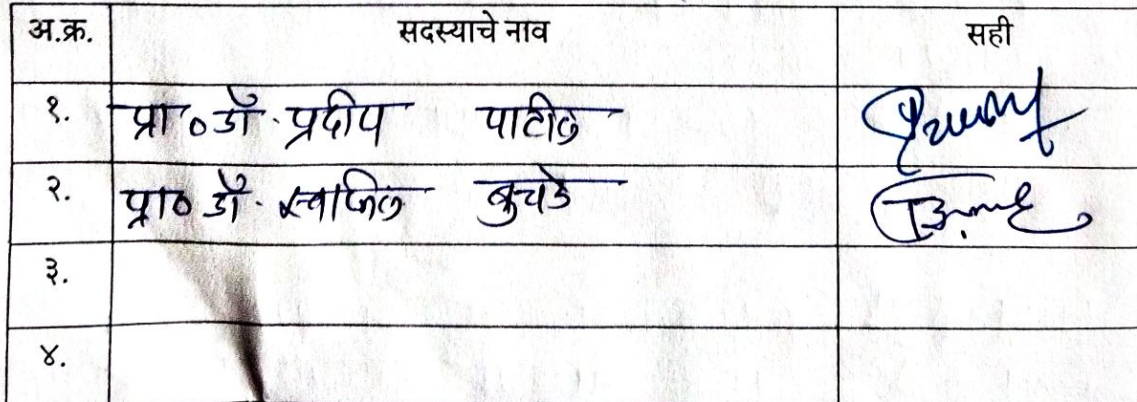 अ.क्र. सदस्याचे नाव सही
१. प्रा० डॉ. प्रदीप पाटील
२. प्रा० डॉ. स्वप्निल बुचडे
३.
४.